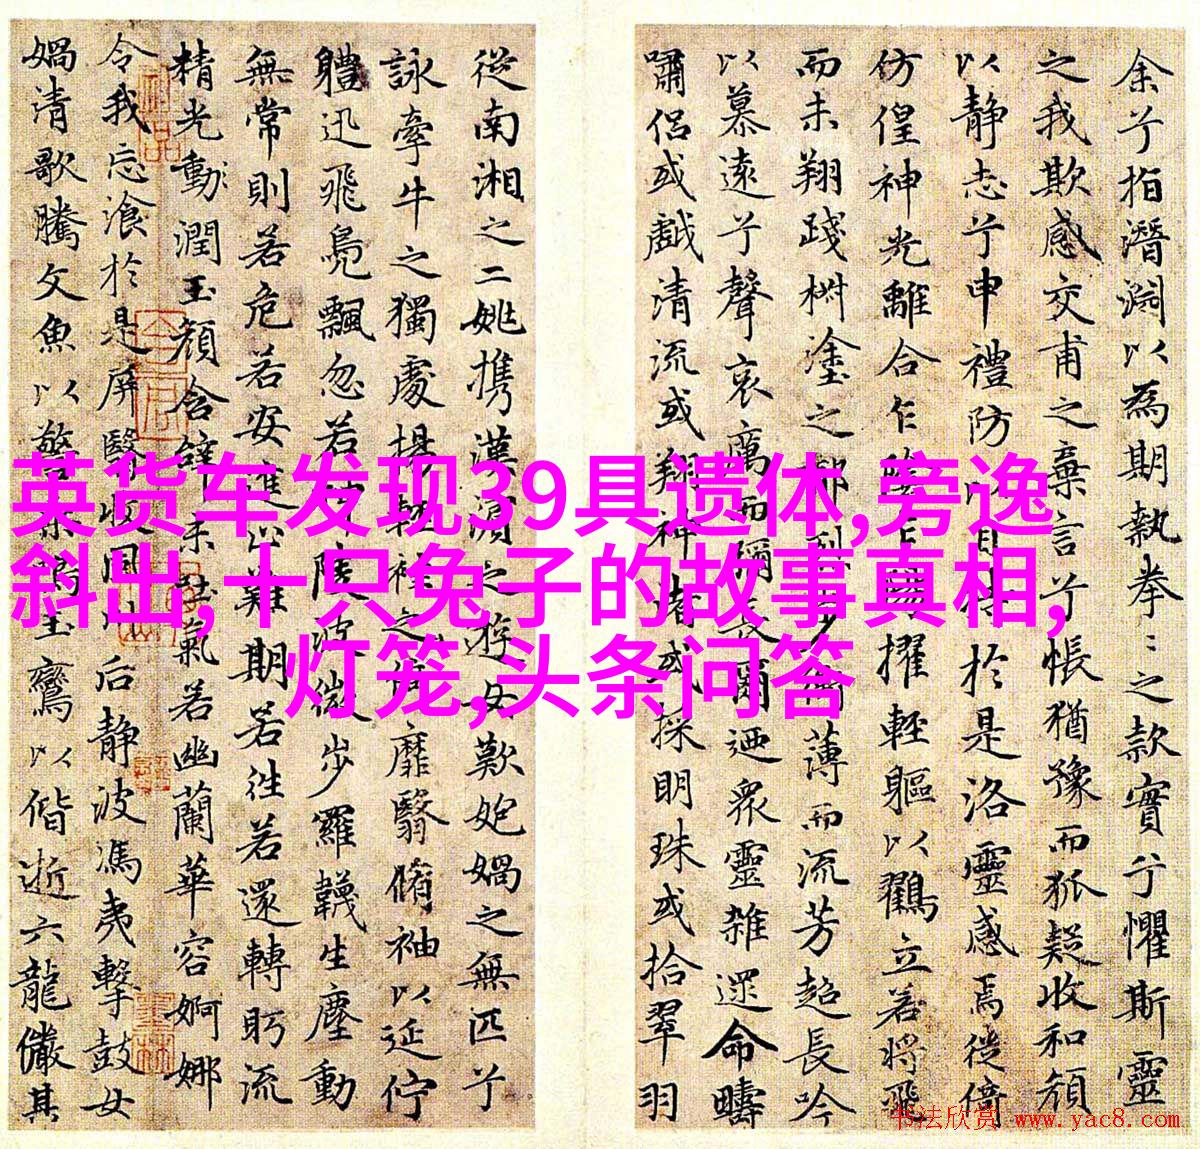 英货车发现39具遗体,旁逸
斜出,十只兔子的故事真相,
灯笼,头条问答
余兮指潜渊以为期执拳〻之款实兮惧斯靈
之我欺感交甫之棄言兮悵猶豫而狐疑收和顔
以静志兮申禮防以自持於是洛靈感焉徙倚
仿偟神光離合乍陰乍陽擢輕軀以鶴立若將飛
而未翔踐椒塗之郁烈步蘅薄而流芳超長吟
以慕遠兮聲哀厲而彌長爾迺衆靈雜遝命疇
嘯侣或戲清流或翔神渚或採明珠或拾翠羽
從南湘之二姚攜漢濱之遊女歎匏媧之無匹兮
詠牽牛之獨處揚輕袿之猗靡翳脩袖以延佇
體迅飛鳧飄忽若神陵波微步羅韈生塵動
無常則若危若安進止難期若往若還轉眄流
精光動潤玉顔含辭未吐氣若幽蘭華容婀娜
令我忘飡於是屏翳收風川后静波馮夷擊鼓女
媧清歌騰文魚以警乘鳴玉鸞以偕逝六龍儼其
书法欣赏 www.yac8.com